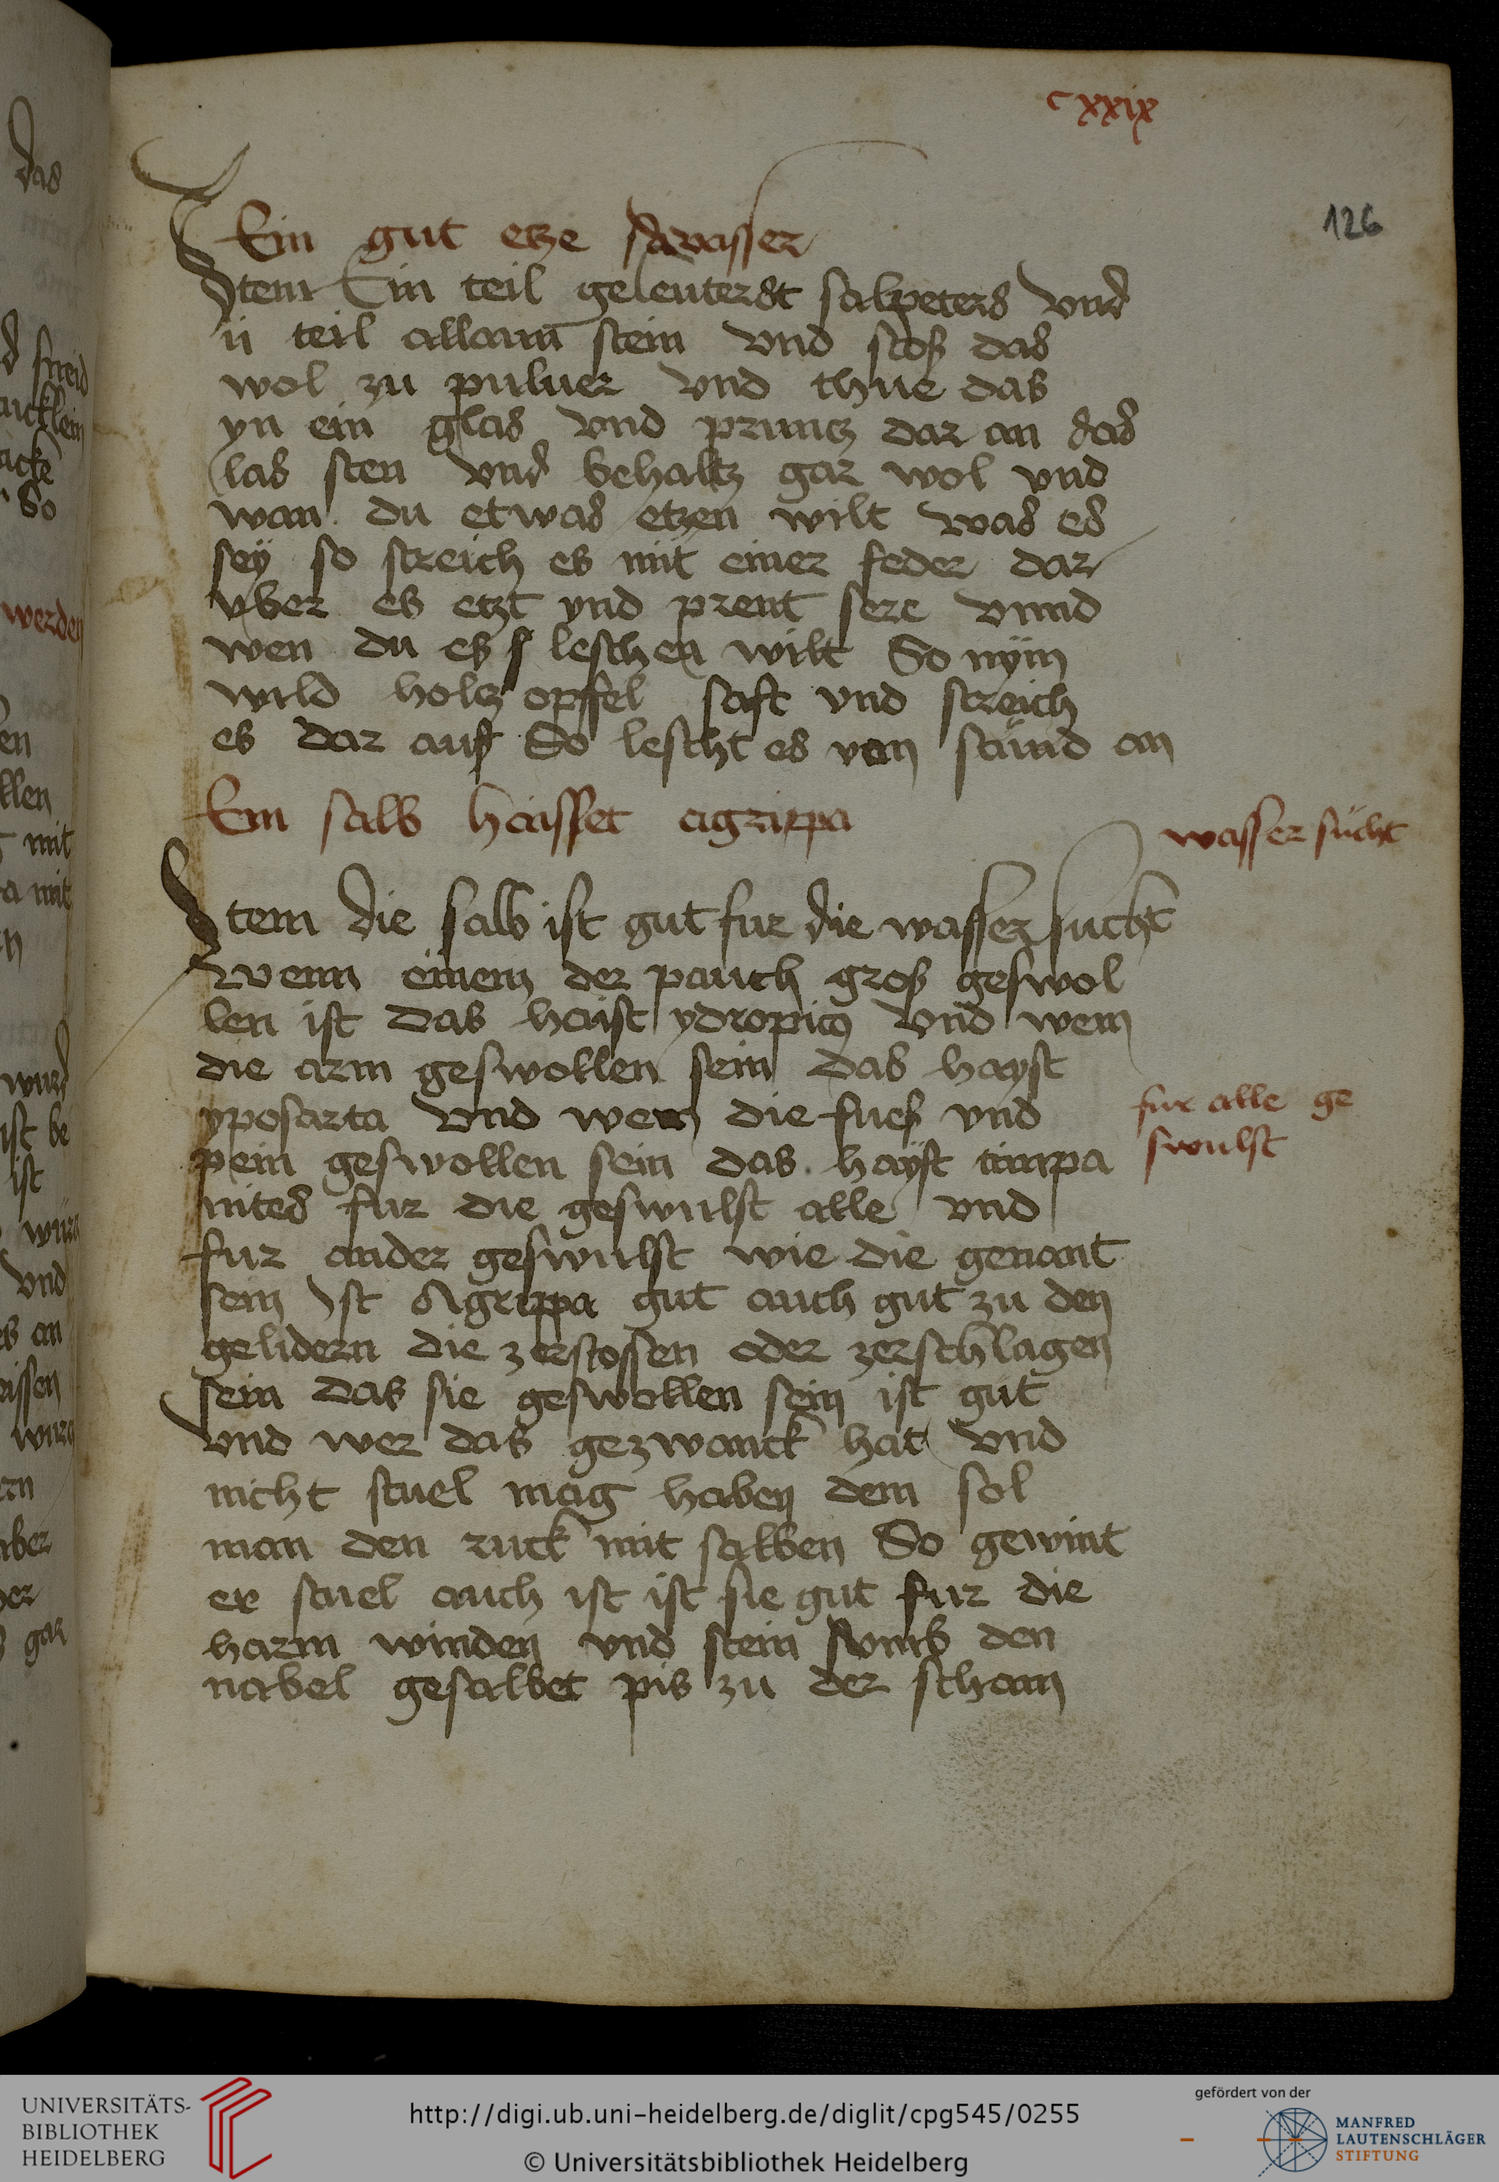 cxxix
126
Ein gut etze wasser
Item Ein teil geleuterdt salpeters vnd
ii teil allaun stein vnd stoß das
wol zu puluer vnd thue das
yn ein glas vnd pruntz dar an das
las sten vnd behaltz gar wol vnd
wan du etwas etzen wilt was es
sey so streich es mit einer feder dar
vber es etzt vnd prent sere vnnd
wen du es leschen wilt So nym
wild holtz opffel saft vnd streich
es dar auff So lescht es von stund an
Ein salb haisset agrippa
wasser sucht
Item die salb ist gut fur die wasser sucht
Wenn einem der pauch groß geswol
len ist das haist ydropicus vnd wem
die arm geswollen sein das hayst
yposarta vnd wem die fueß vnd
fur alle ge
swulst
pein geswollen sein das hayst timpa
nites fur die geswulst alle vnd
fur ander geswulst wie die genant
sein Ist Agrippa gut auch gut zu den
gelidern die zerstossen oder zerschlagen
sein das sie geswollen sein ist gut
vnd wer das gezwanck hat vnd
nicht stuel mag haben dem sol
man den ruck mit salben So gewint
er stuel auch ist ist sie gut fur die
harm winden vnd stein vmb den
nabel gesalbet pis zu der scham
das
werden
UNIVERSITÄTS-
BIBLIOTHEK
HEIDELBERG
http://digi.ub.uni-heidelberg.de/diglit/cpg545/0255
© Universitätsbibliothek Heidelberg
gefördert von der
MANFRED
LAUTENSCHLÄGER
STIFTUNG